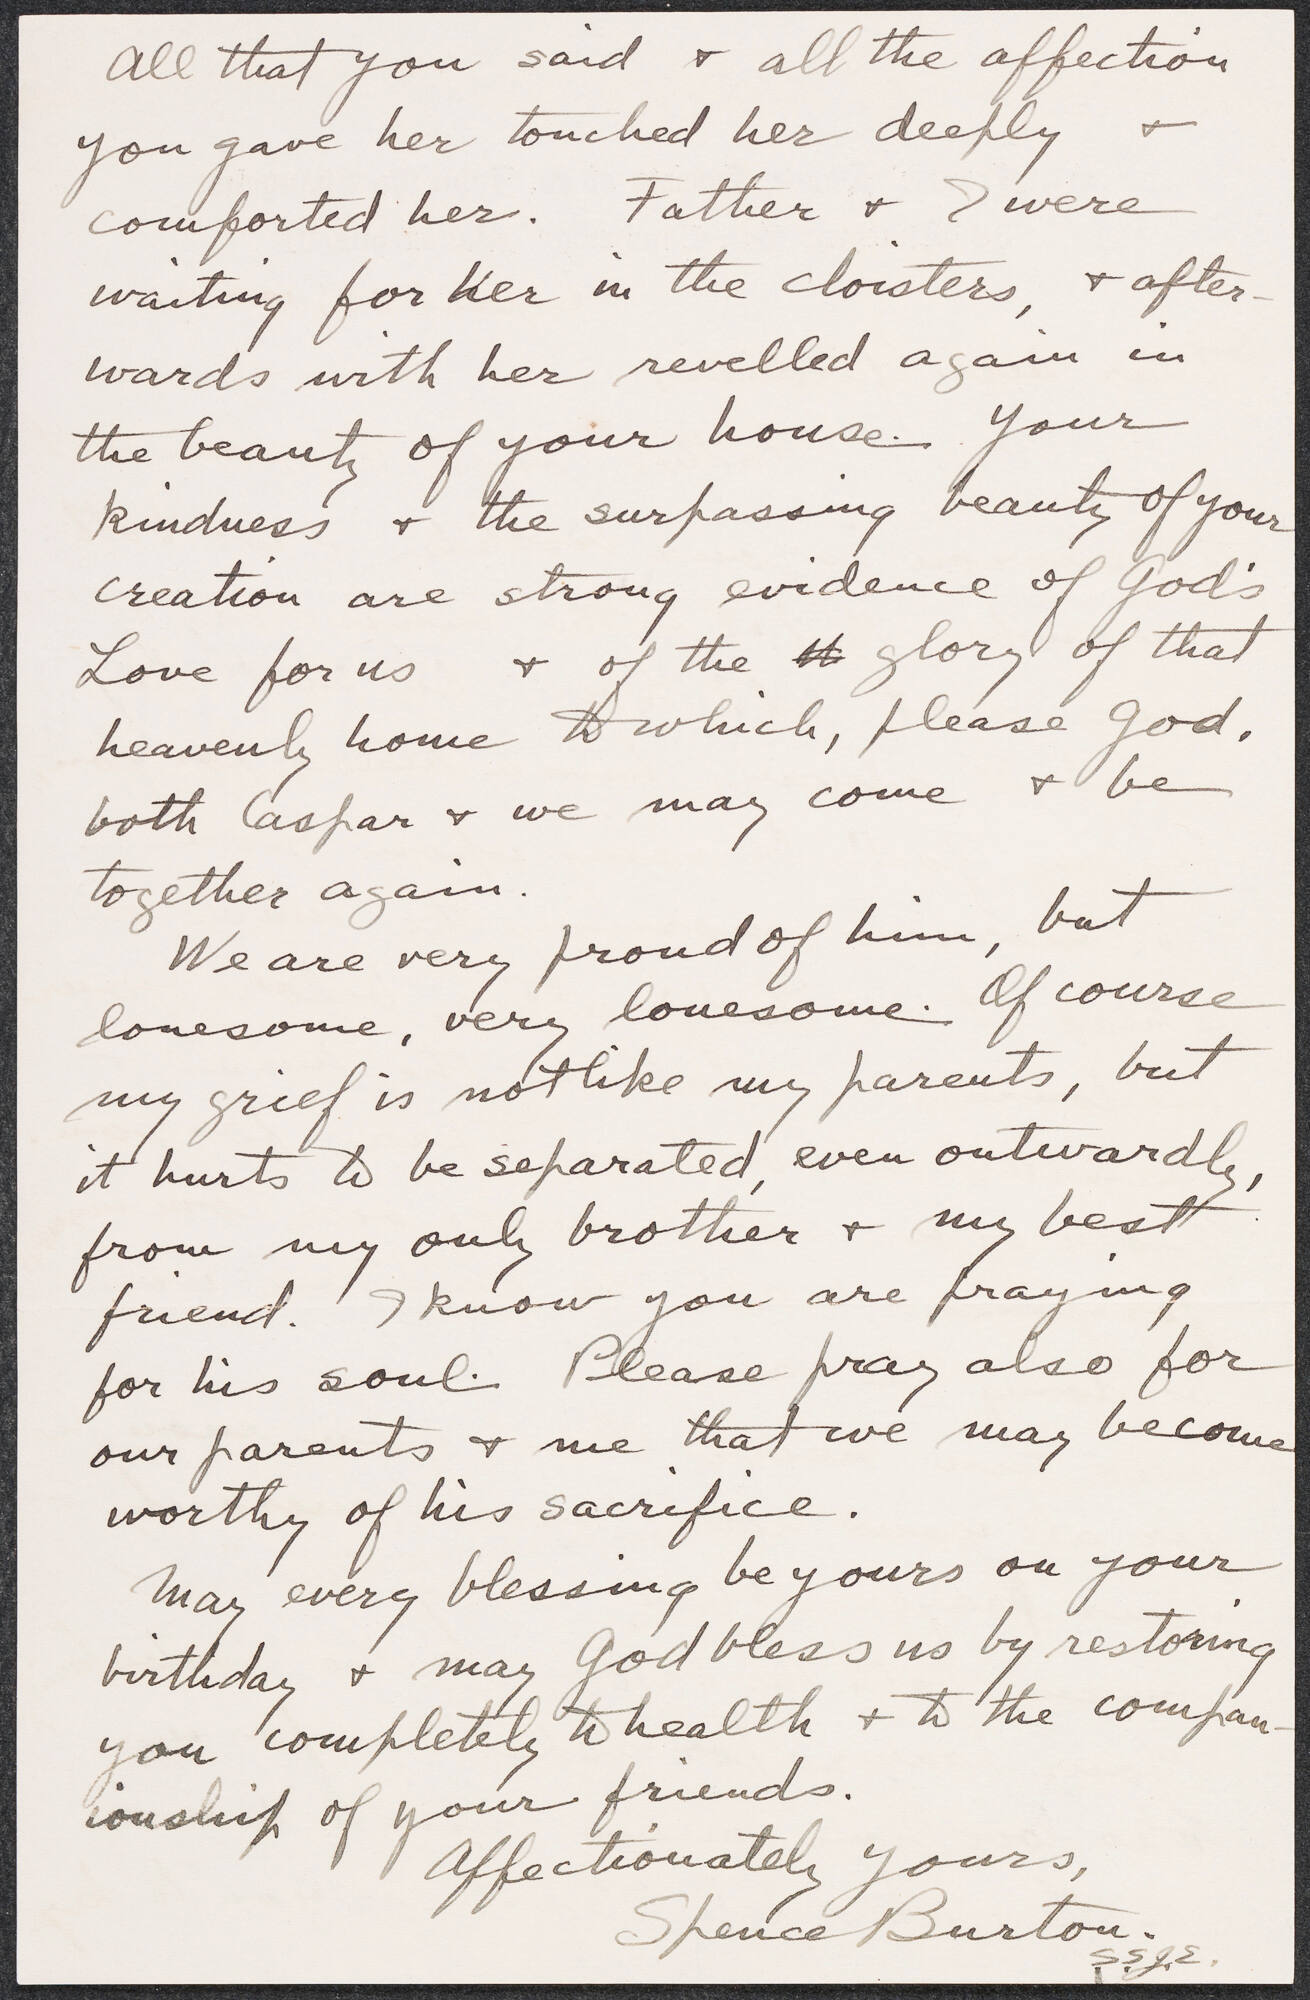 All that you said & all the affection
you gave her touched her deeply &
comforted her. Father & I were
waiting for her in the cloisters, & after-
wards with her revelled again in
the beauty of your house. Your
kindness & the surpassing beauty of your
creation are strong evidence of God's
Love for us & of the glory of that
heavenly home to which, please God,
both Caspar & we may come & be
together again.
We are very proud of him, but
lonesome, very lonesome. Of course
my grief is not like my parents, but
it hurts to be separated, even outwardly,
from my only brother & my best
friend. I know you are praying
for his soul. Please pray also for
our parents & me that we may become
worthy of his sacrifice.
May every blessing be yours on your
birthday & may God bless us by restoring
you completely to health & to the compan-
ionship of your friends.
Affectionately yours,
Spence Burton.
S.S.J.E.